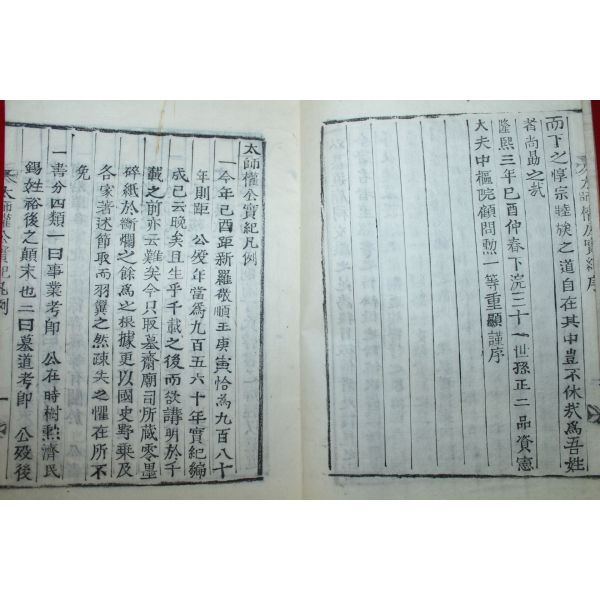 太師權公實紀序
而下之惇宗睦族之道自在其中豈不休哉爲吾姓
者尚勗之哉
隆熙三年己酉仲春下浣三十一世孫正二品資憲
大夫中樞院顧問勲一等重顯謹序
太師權公實紀凡例
一今年己酉距新羅敬順王庚寅恰爲九百八十
年則距 公歿年當爲九百五六十年實紀編
成已云晩矣且生乎千載之後而欲講明於千
載之前亦云難矣今只取墓齋廟司所蔵零墨
碎紙於斷爛之餘爲之根據更以國史野乗及
各家著述節取而羽翼之然疎失之懼在所不
免
一書分四類一曰事業考卽 公在時樹勲濟民
錫姓裕後之顛末也二曰墓道考卽 公歿後
太師權公實紀凡例
一